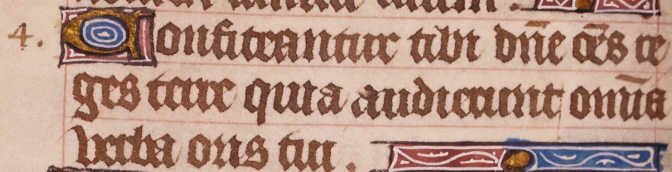 4. Confiteantur tibi dn̄e oēs re
ges terre quia audierunt om̄ia
verba oris tui.